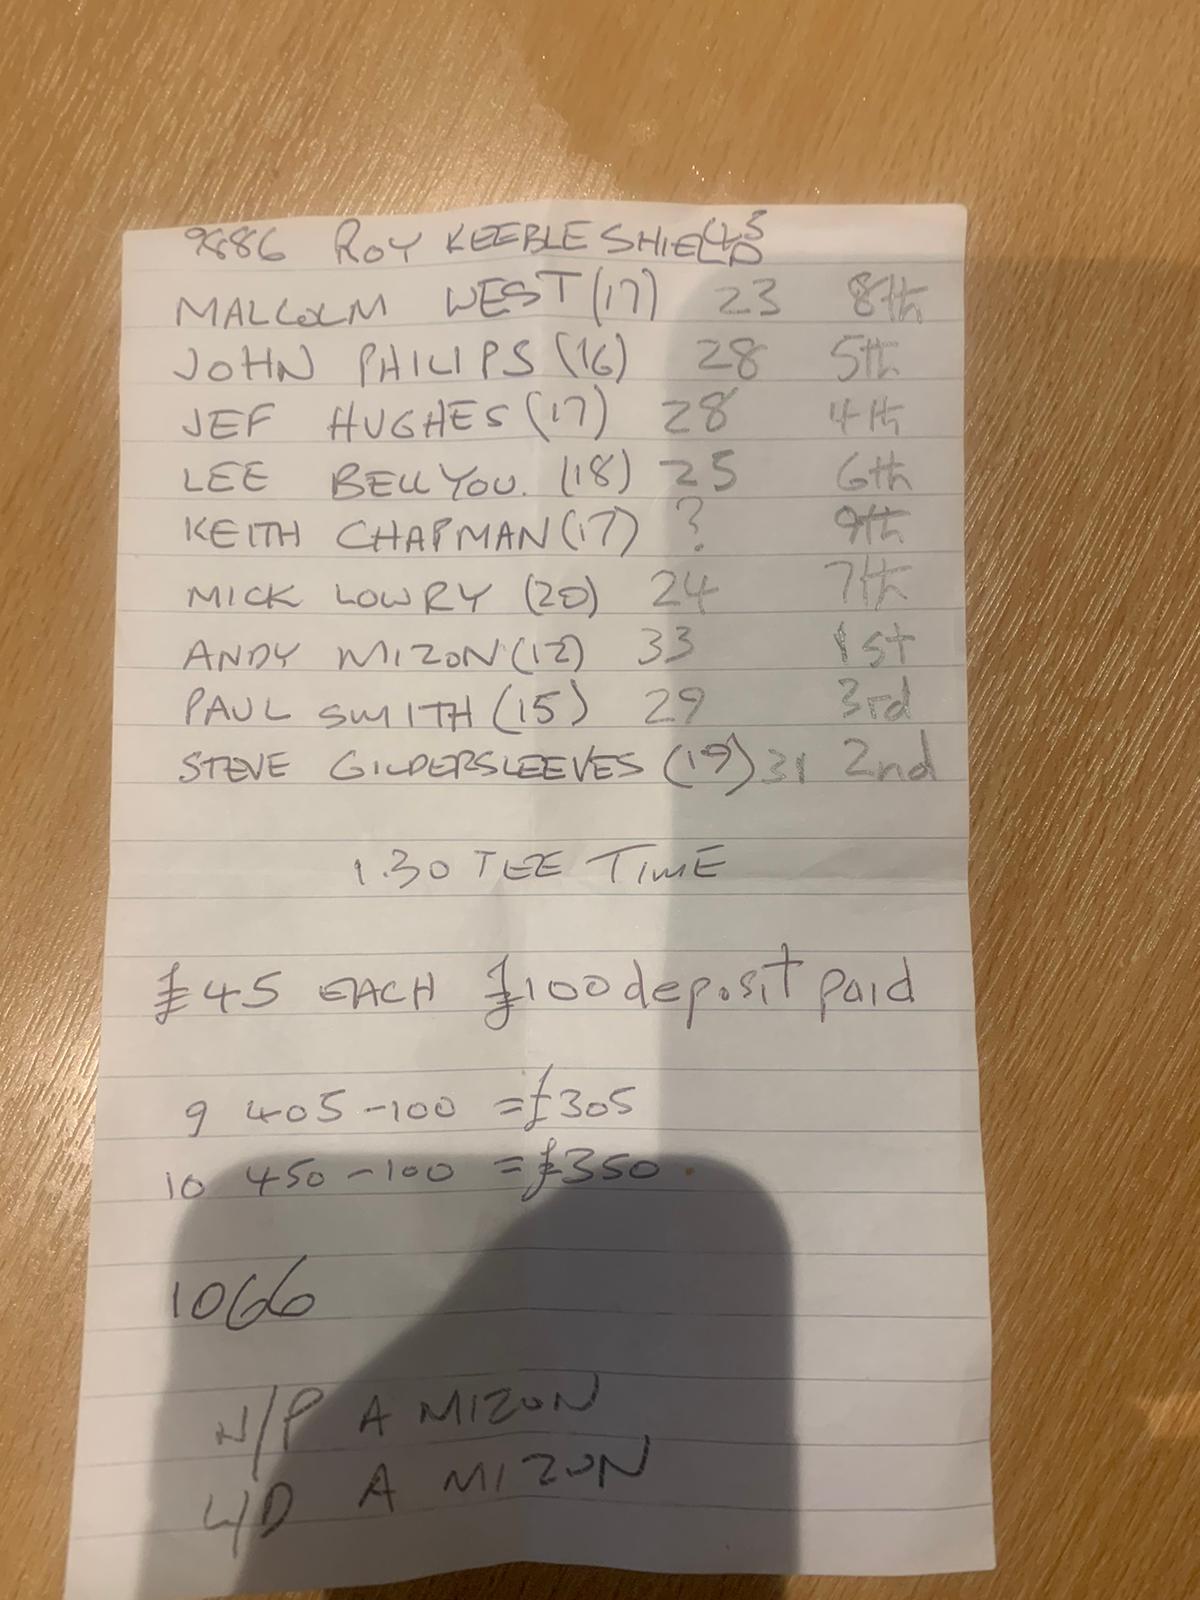 9886 ROY KEEBLE SHIELD
MALCOLM WEST (17) 23 8th
JOHN PHILIPS (16) 28 5th
JEF HUGHES (17) 28 4th
LEE BELLYOU. (18) 25 6th
KEITH CHAPMAN (17) ? 9th
MICK LOWRY (20) 24 7th
ANDY MIZON (12) 33 1st
PAUL SMITH (15) 29 3rd
STEVE GILDERSLEEVES (19) 31 2nd
1.30 TEE TIME
£45 EACH £100 deposit paid
9 405-100 = £305
10 450-100 = £350
1066
N/P A MIZON
L/D A MIZON